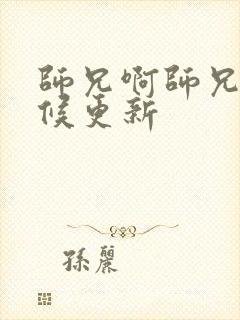 師兄啊師兄
候更新
孫麗